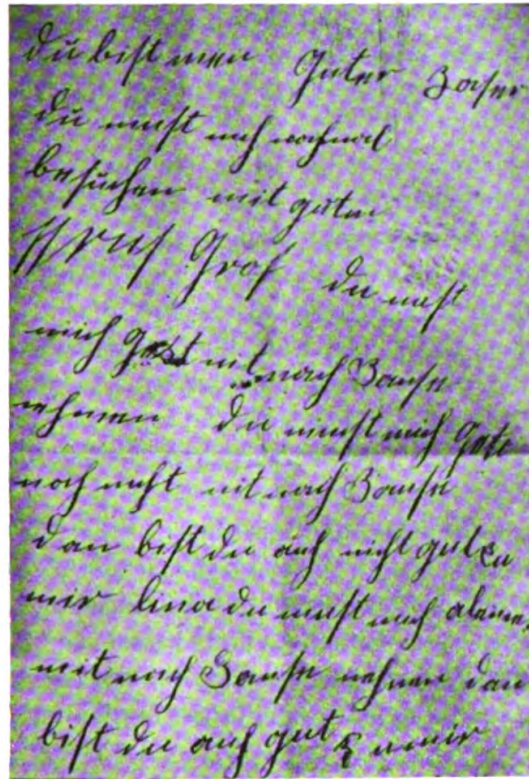 du bist men guter
du must mich nochmal
besuchen mit guten
Grus Graf du must
mich mit nach Hause
nehmen du must mich
noch nicht mit nach Hause
dan bist du auch nicht gut zu
mir lina du must mich
mit nach Hause nehmen dan
bist du auch gut zu mir